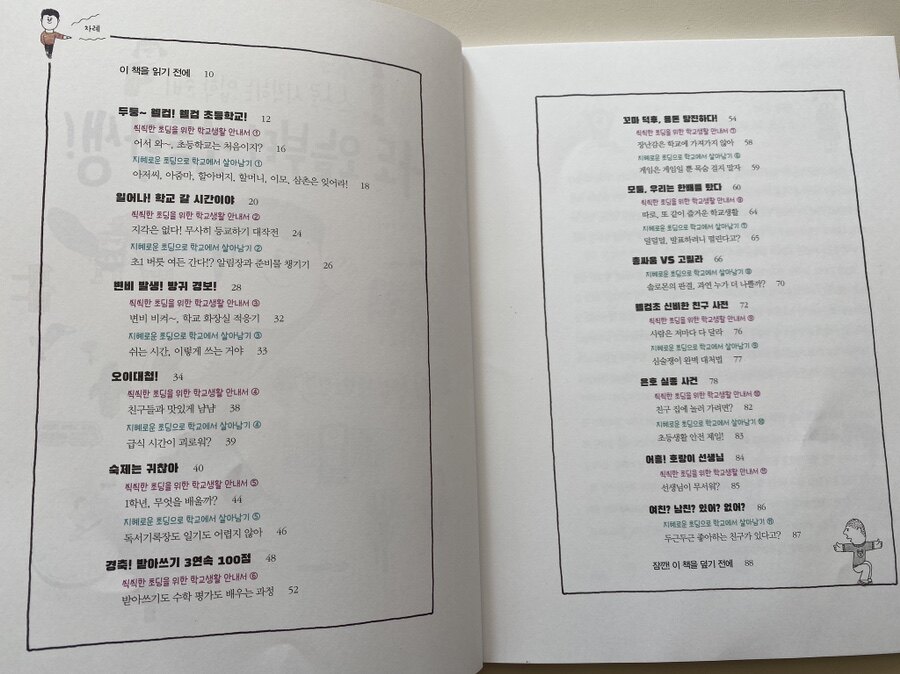 차례
이 책을 읽기 전에 10
두둥~ 웰컴! 헬컴 초등학교! 12
씩씩한 초딩을 위한 학교생활 안내서 ①
어서 와~, 초등학교는 처음이지? 16
지혜로운 초딩으로 학교에서 살아남기 ①
아저씨, 아줌마, 할아버지, 할머니, 이모, 삼촌은 잊어라! 18
일어나! 학교 갈 시간이야 20
씩씩한 초딩을 위한 학교생활 안내서 ②
지각은 없다! 무사히 등교하기 대작전 24
지혜로운 초딩으로 학교에서 살아남기 ②
초1 버릇 여든 간다!? 알림장과 준비물 챙기기 26
변비 탈생! 방귀 경보! 28
씩씩한 초딩을 위한 학교생활 안내서 ③
변비 비켜~, 학교 화장실 적응기 32
지혜로운 초딩으로 학교에서 살아남기 ③
쉬는 시간, 이렇게 쓰는 거야 33
오이대첩! 34
씩씩한 초딩을 위한 학교생활 안내서 ④
친구들과 맛있게 냠냠 38
지혜로운 초딩으로 학교에서 살아남기 ④
급식 시간이 괴로워? 39
숙제는 귀찮아 40
씩씩한 초딩을 위한 학교생활 안내서 ⑤
1학년, 무엇을 배울까? 44
지혜로운 초딩으로 학교에서 살아남기 ⑤
독서기록장도 일기도 어렵지 않아 46
경축! 받아쓰기 3연속 100점 48
씩씩한 초딩을 위한 학교생활 안내서 ⑥
받아쓰기도 수학 평가도 배우는 과정 52
꼬마 덕후, 용돈 탕진하다! 54
씩씩한 초딩을 위한 학교생활 안내서 ⑦
장난감은 학교에 가져가지 않아 58
지혜로운 초딩으로 학교에서 살아남기 ⑥
게임은 게임일 뿐 목숨 걸지 말자 59
모둠, 우리는 한배를 탔다 60
씩씩한 초딩을 위한 학교생활 안내서 ⑧
따로, 또 같이 즐거운 학교생활 64
지혜로운 초딩으로 학교에서 살아남기 ⑦
덜덜덜, 발표하려니 떨린다고? 65
총싸움 VS 고릴라 66
지혜로운 초딩으로 학교에서 살아남기 ⑧
솔로몬의 판결, 과연 누가 더 나를까? 70
헬컴초 신비한 친구 사전 72
씩씩한 초딩을 위한 학교생활 안내서 ⑨
사람은 저마다 다 달라 76
지혜로운 초딩으로 학교에서 살아남기 ⑨
심술쟁이 완벽 대처법 77
은호 실종 사건 78
씩씩한 초딩을 위한 학교생활 안내서 ⑩
친구 집에 놀러 가려면? 82
지혜로운 초딩으로 학교에서 살아남기 ⑩
초등생활 안전 제일! 83
어흥! 호랑이 선생님 84
씩씩한 초딩을 위한 학교생활 안내서 ⑪
선생님이 무서워? 85
여친? 남친? 있어? 없어? 86
지혜로운 초딩으로 학교에서 살아남기 ⑪
두근두근 좋아하는 친구가 있다고? 87
잠깐! 이 책을 덮기 전에 88